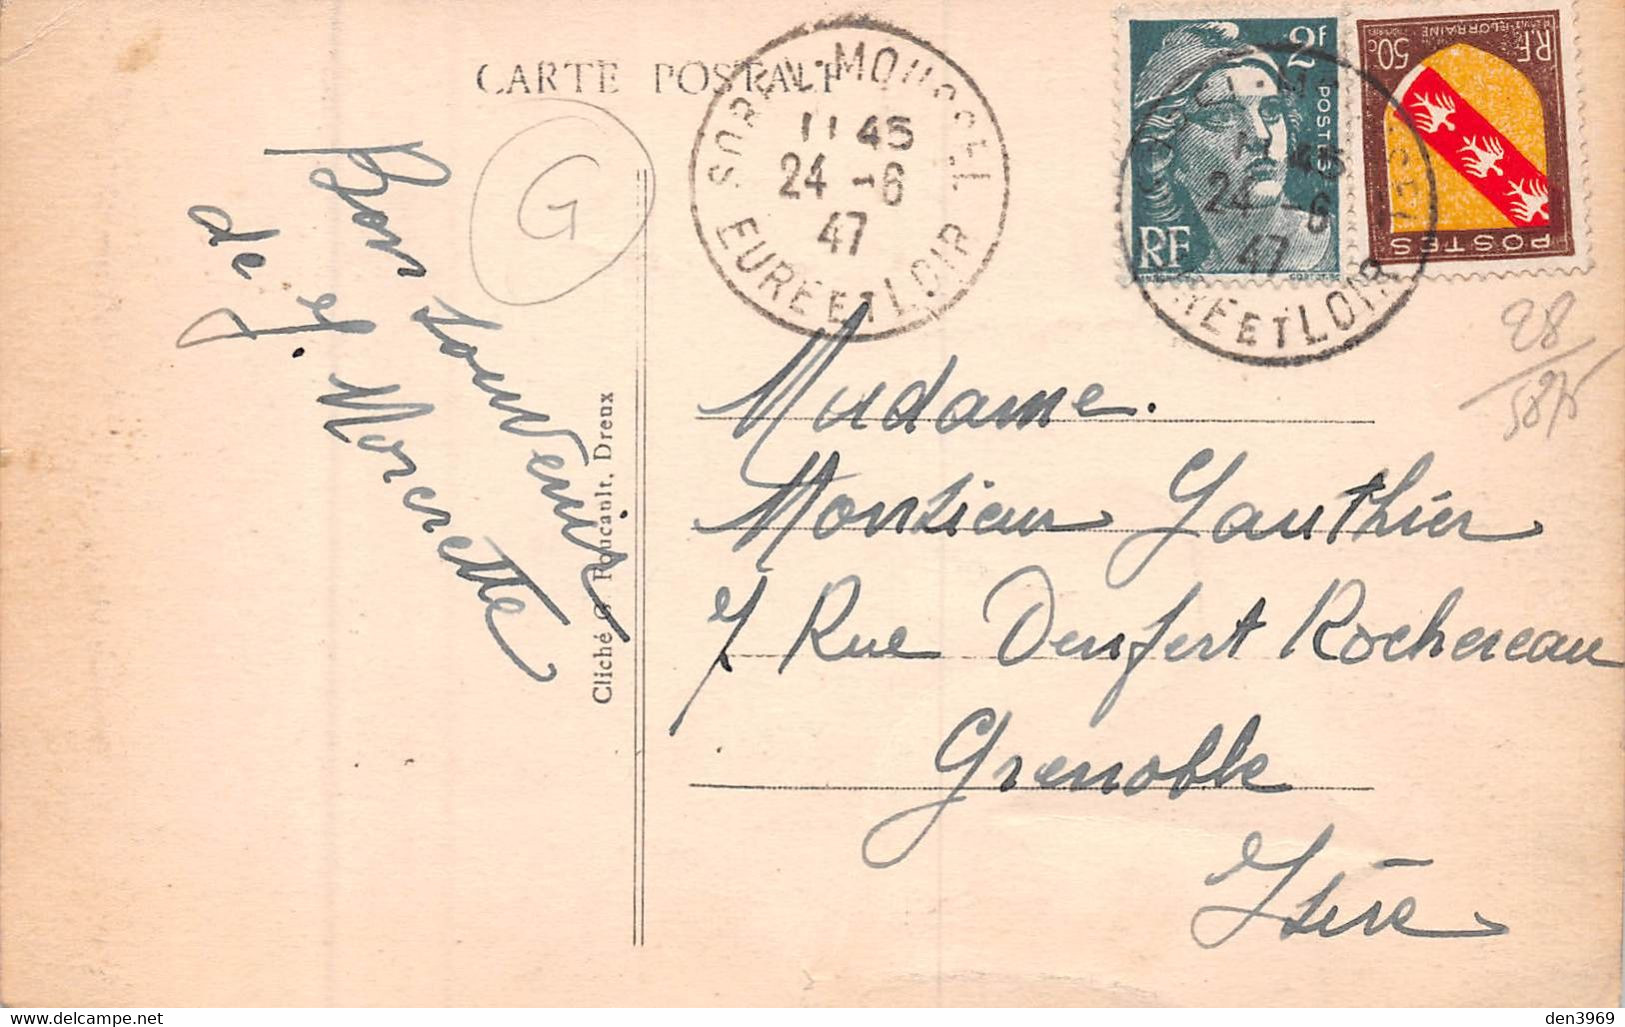 CARTE POSTALE
SOREL-MOUSSEL
11 45
24 -6
47
EURE ET LOIR
2F
POSTES
RF
R.F.
50c
LORRAINE
POSTES
11 45
24 -6
47
EURE ET LOIR
G
28
Bon souvenir
de
J. Morcrette
Cliché G. Foucault, Dreux
Madame.
Monsieur Gauthier
7 Rue Denfert Rochereau
Grenoble
Isère
den3969